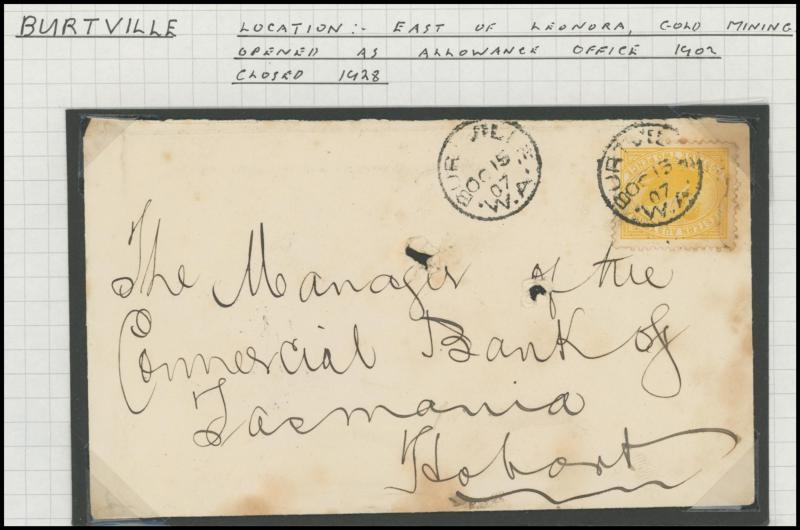 BURTVILLE LOCATION:- EAST OF LEONORA, GOLD MINING
OPENED AS ALLOWANCE OFFICE 1902
CLOSED 1928
BUR VILLE
OC 15
07
W.A.
BURTVILLE
OC 15
07
W.A.
The Manager of the
Commercial Bank of
Tasmania
Hobart